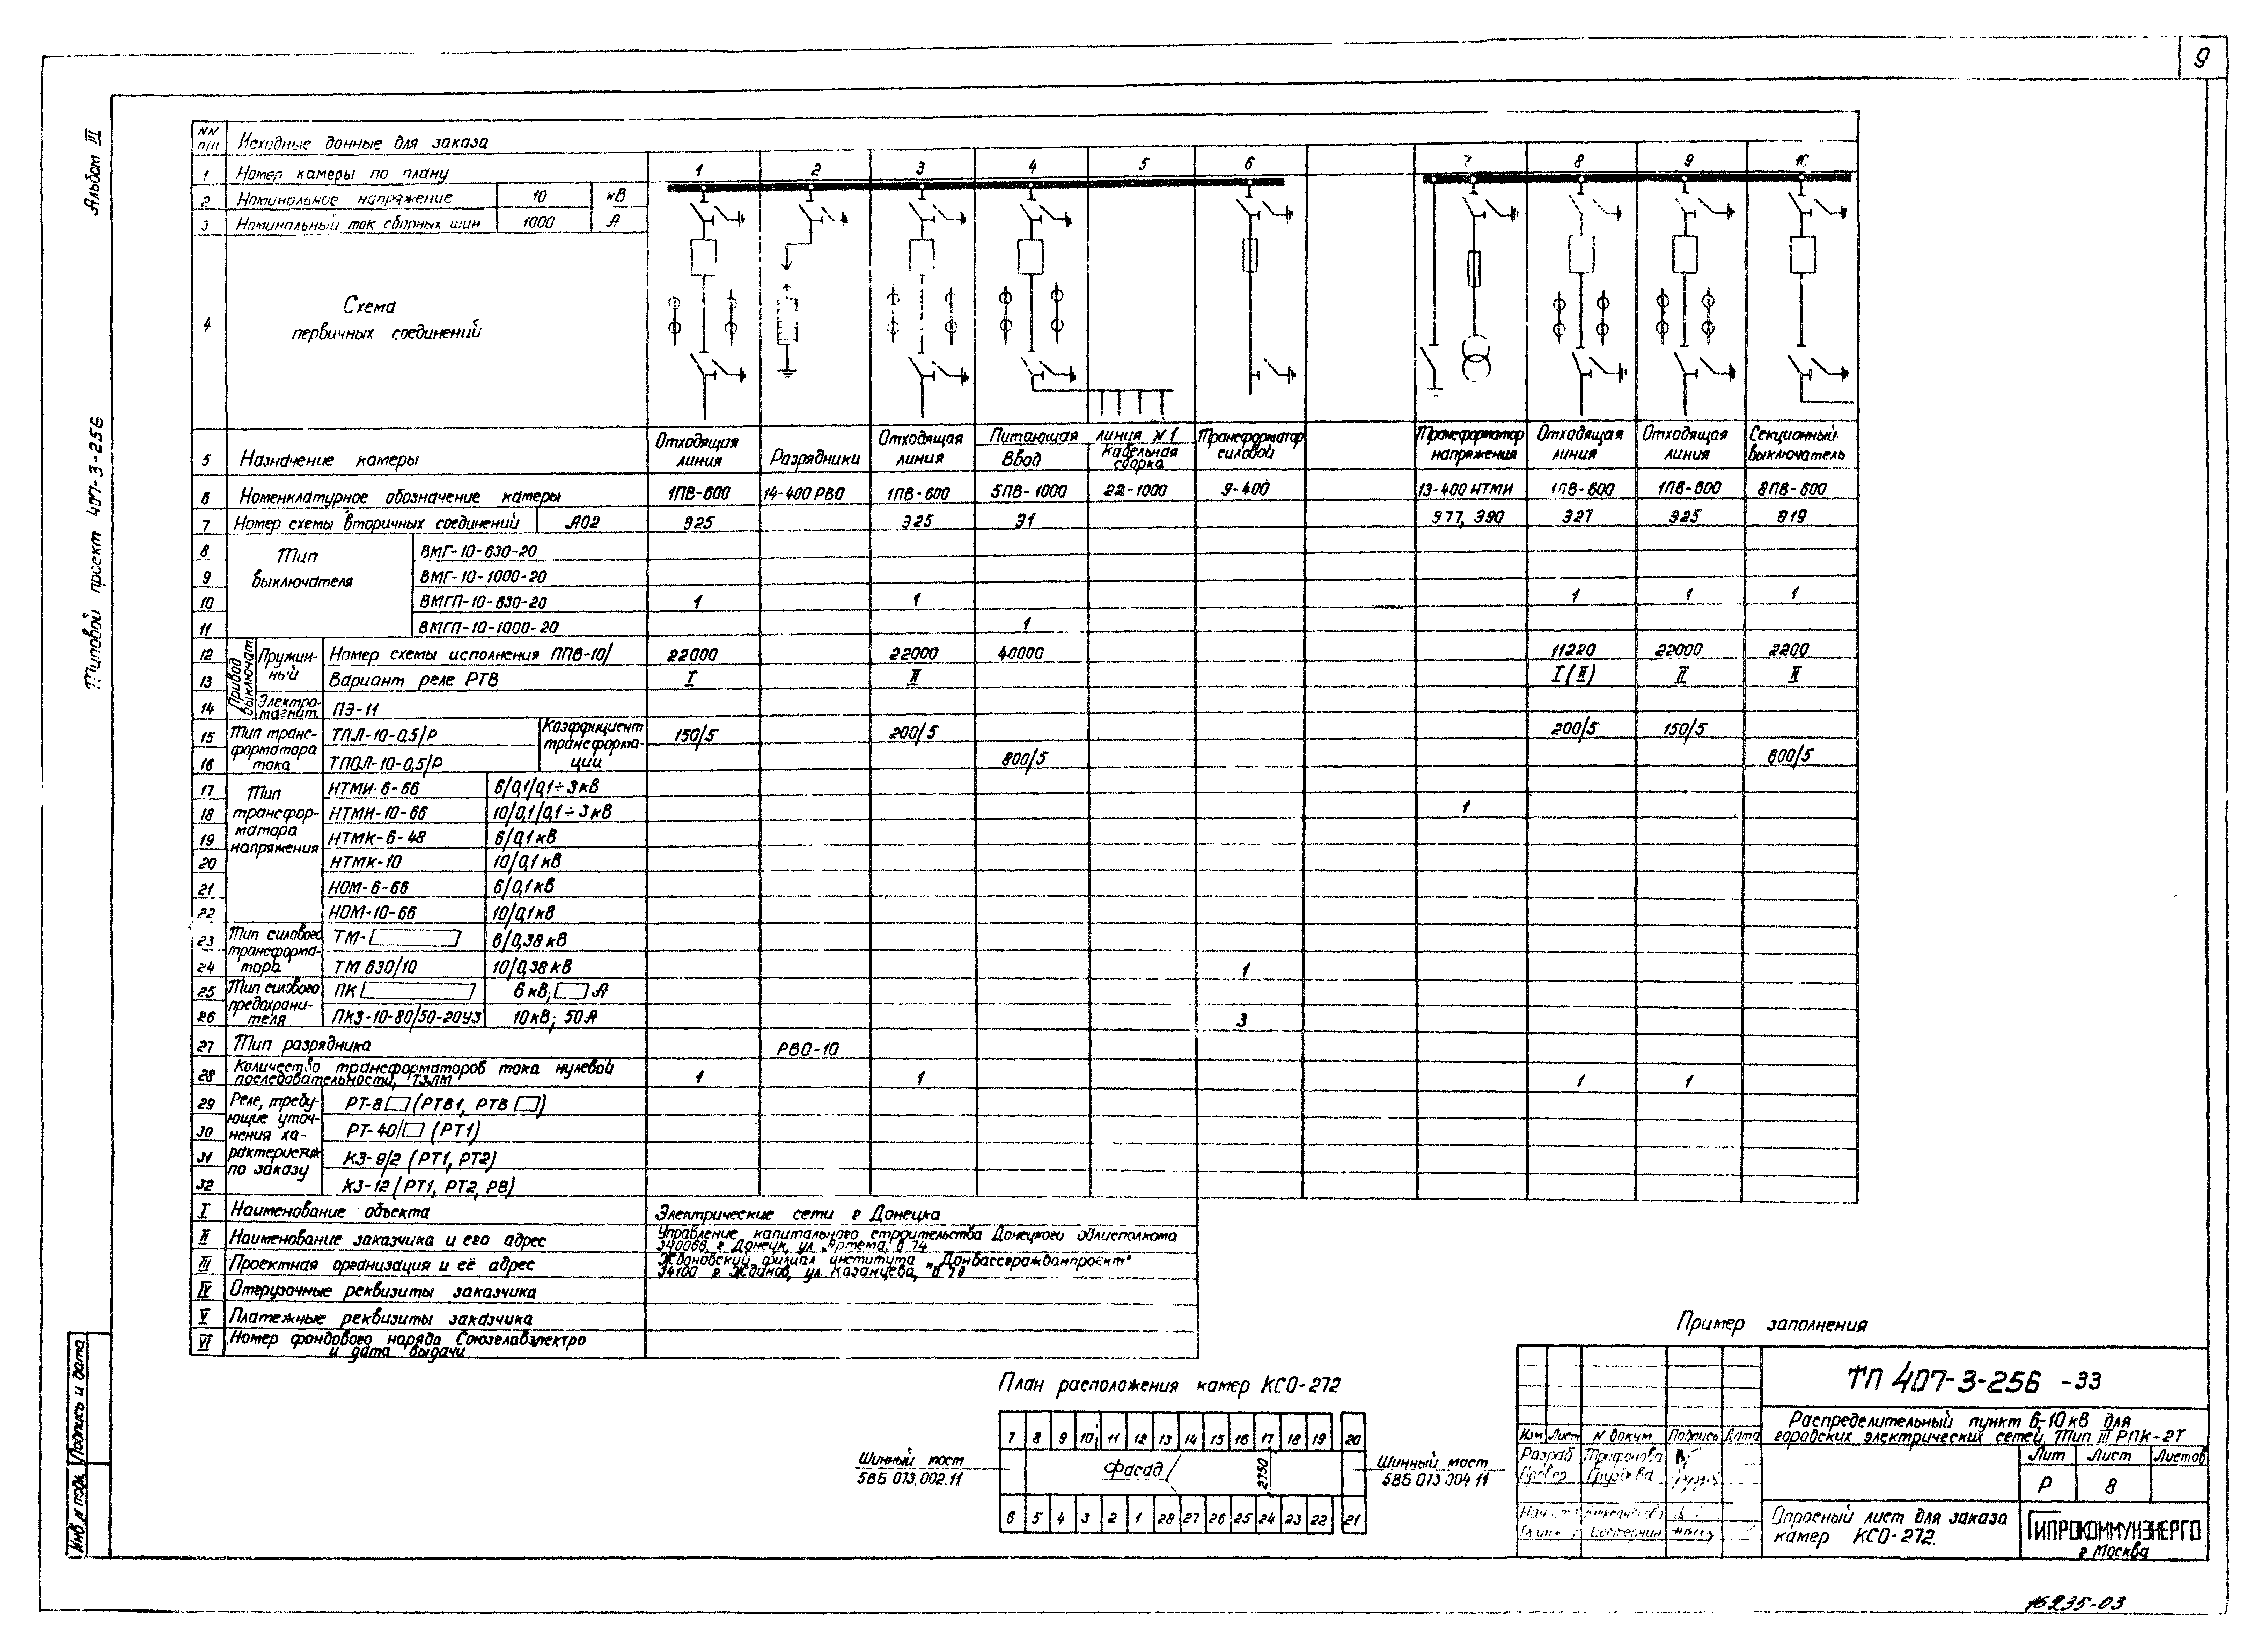 9
Альбом III
Типовой проект 407-3-256
Подпись и дата
Инв. № подл.
NN п/п
Исходные данные для заказа
1 Номер камеры по плану 1 2 3 4 5 6 7 8 9 10
2 Номинальное напряжение 10 кВ
3 Номинальный ток сборных шин 1000 А
4 Схема
первичных соединений
5 Назначение камеры
Отходящая линия
Разрядники
Отходящая линия
Питающая линия №1
Ввод
Кабельная сборка
Трансформатор силовой
Трансформатор напряжения
Отходящая линия
Отходящая линия
Секционный выключатель
6 Номенклатурное обозначение камеры 1ПВ-600 14-400 РВО 1ПВ-600 5ПВ-1000 22-1000 9-400 13-400 НТМИ 1ПВ-600 1ПВ-600 8ПВ-600
7 Номер схемы вторичных соединений А02 Э25 Э25 Э1 Э77, Э90 Э27 Э25 Э19
Тип выключателя
8 ВМГ-10-630-20
9 ВМГ-10-1000-20
10 ВМГП-10-630-20 1 1 1 1 1
11 ВМГП-10-1000-20 1
Привод выключат.
Пружинный
12 Номер схемы исполнения ППВ-10/ 22000 22000 40000 11220 22000 2200
13 Вариант реле РТВ I II I(II) II II
14 Электромагнит. ПЭ-11
Тип трансформатора тока
15 ТПЛ-10-0,5/Р Коэффициент трансформации 150/5 200/5 200/5 150/5
16 ТПОЛ-10-0,5/Р 800/5 600/5
Тип трансформатора напряжения
17 НТМИ-6-66 6/0,1/0,1÷3 кВ
18 НТМИ-10-66 10/0,1/0,1÷3 кВ 1
19 НТМК-6-48 6/0,1 кВ
20 НТМК-10 10/0,1 кВ
21 НОМ-6-66 6/0,1 кВ
22 НОМ-10-66 10/0,1 кВ
Тип силового трансформатора
23 ТМ- 6/0,38 кВ
24 ТМ 630/10 10/0,38 кВ 1
Тип силового предохранителя
25 ПК 6 кВ; А
26 ПК3-10-80/50-20У3 10 кВ; 50 А 3
27 Тип разрядника РВО-10
28 Количество трансформаторов тока нулевой
последовательности, ТЗЛМ 1 1 1 1
Реле, требующие уточнения характеристик по заказу
29 РТ-8 (РТВ1, РТВ )
30 РТ-40/ (РТ1)
31 КЗ-9/2 (РТ1, РТ2)
32 КЗ-12 (РТ1, РТ2, РВ)
I Наименование объекта Электрические сети г Донецка
II Наименование заказчика и его адрес Управление капитального строительства Донецкого облисполкома
340066, г Донецк, ул Артема, д 74
III Проектная организация и её адрес Ждановский филиал института „Донбассгражданпроект"
34100 г Жданов, ул. Казанцева,
IV Отгрузочные реквизиты заказчика
V Платежные реквизиты заказчика
VI Номер фондового наряда Союзглавэлектро
и дата выдачи
План расположения камер КСО-272
7 8 9 10 11 12 13 14 15 16 17 18 19 20
Шинный мост
5ВБ 073.002.11
Фасад
2750
Шинный мост
5ВБ 073 004 11
6 5 4 3 2 1 28 27 26 25 24 23 22 21
Пример заполнения
ТП 407-3-256 -ЭЗ
Распределительный пункт 6-10 кВ для
городских электрических сетей, Тип III РПК-2Т
Изм Лист N докум Подпись Дата
Разраб Трифонова
Провер
Лит Лист Листов
Р 8
Опросный лист для заказа
камер КСО-272.
ГИПРОКОММУНЭНЕРГО
г Москва
16235-03